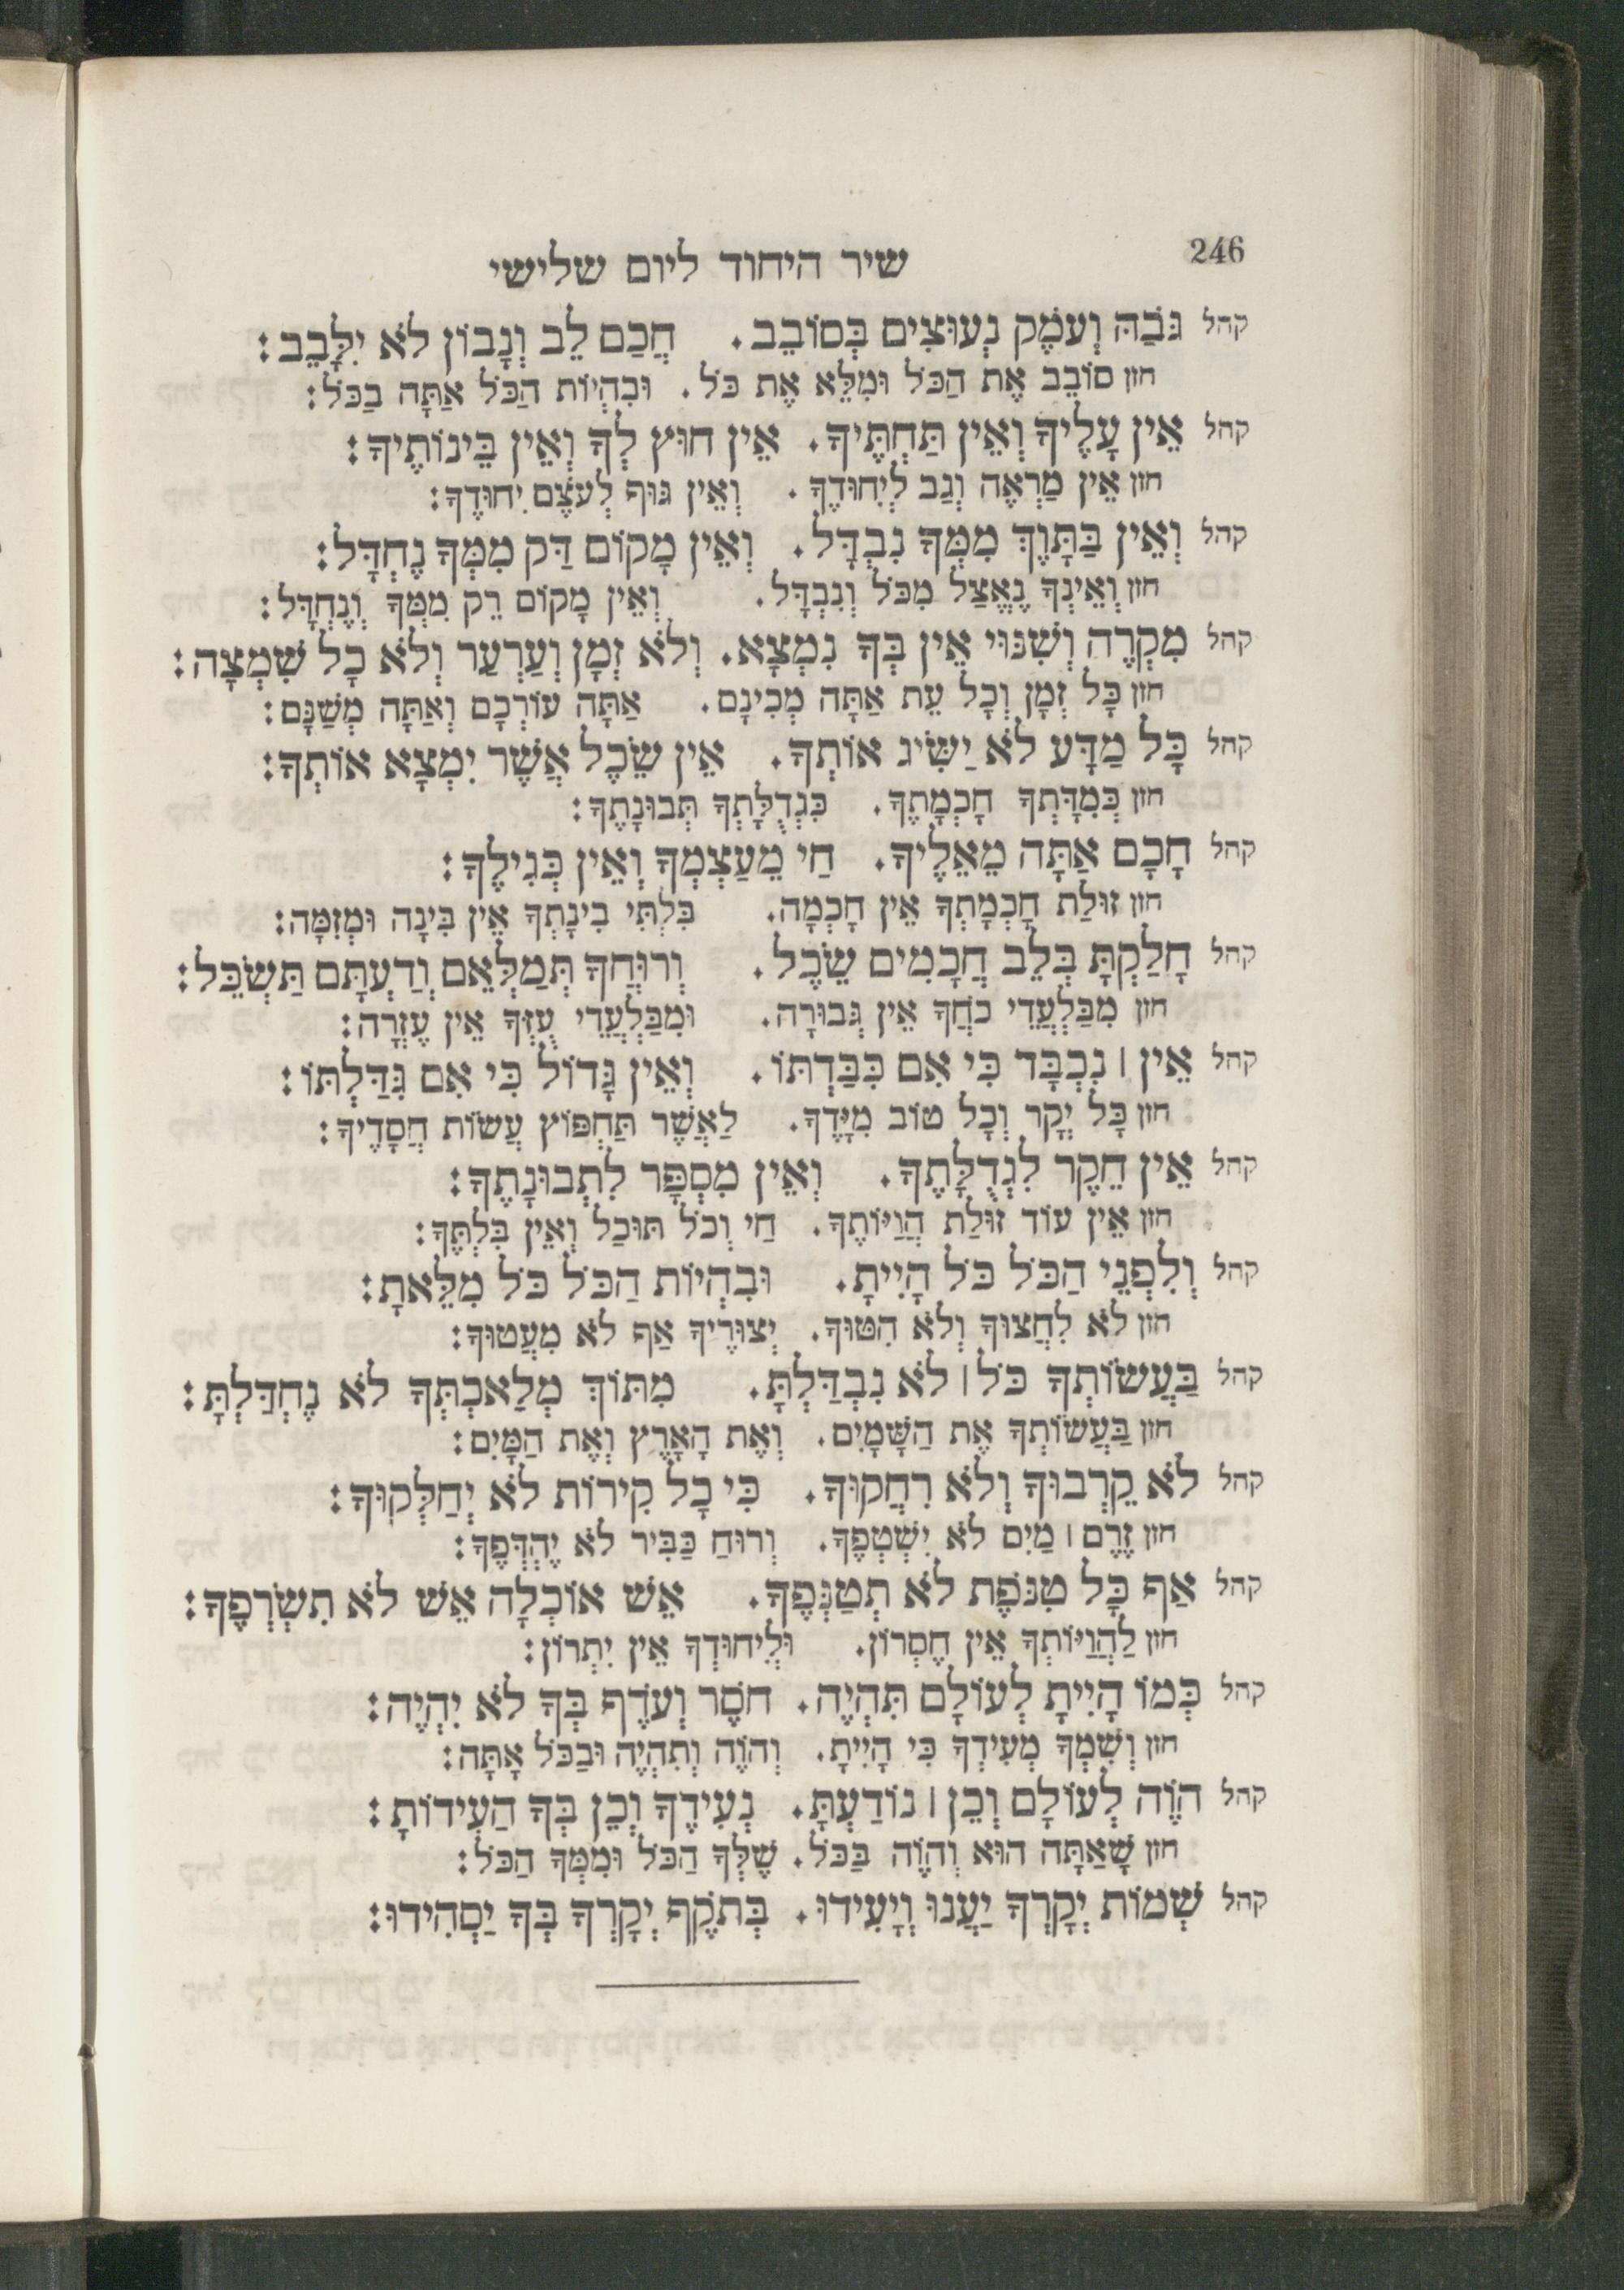 246
שיר היחוד ליום שלישי
קהל גֹּבַהּ וְעֹמֶק נְעוּצִים בְּסוֹבֵב. חֲכַם לֵב וְנָבוֹן לֹא יִלָּבֵב:
חזן סוֹבֵב אֶת הַכֹּל וּמָלֵא אֶת כֹּל. וּבִהְיוֹת הַכֹּל אַתָּה בַכֹּל:
קהל אֵין עָלֶיךָ וְאֵין תַּחְתֶּיךָ. אֵין חוּץ לְךָ וְאֵין בֵּינוֹתֶיךָ:
חזן אֵין מַרְאֶה וְגַב לְיִחוּדֶךָ. וְאֵין גּוּף לְעֹצֶם יִחוּדֶךָ:
קהל וְאֵין בַּתָּוֶךְ מִמְּךָ נִבְדָּל. וְאֵין מָקוֹם דַּק מִמְּךָ נֶחְדָּל:
חזן וְאֵינְךָ נֶאֱצַל מִכֹּל וְנִבְדָּל. וְאֵין מָקוֹם רֵק מִמְּךָ וְנֶחְדָּל:
קהל מִקְרֶה וְשִׁנּוּי אֵין בְּךָ נִמְצָא. וְלֹא זְמָן וְעַרְעַר וְלֹא כָל שִׁמְצָה:
חזן כָּל זְמָן וְכָל עֵת אַתָּה מְכִינָם. אַתָּה עוֹרְכָם וְאַתָּה מְשַׁנָּם:
קהל כָּל מַדָּע לֹא יַשִּׂיג אוֹתְךָ. אֵין שֵׂכֶל אֲשֶׁר יִמְצָא אוֹתְךָ:
חזן כְּמִדָּתְךָ חָכְמָתֶךָ. כִּגְדֻלָּתְךָ תְּבוּנָתֶךָ:
קהל חָכָם אַתָּה מֵאֵלֶיךָ. חַי מֵעַצְמְךָ וְאֵין כְּגִילֶךָ:
חזן זוּלַת חָכְמָתְךָ אֵין חָכְמָה. בִּלְתִּי בִינָתְךָ אֵין בִּינָה וּמְזִמָּה:
קהל חָלַקְתָּ בְּלֵב חֲכָמִים שֵׂכֶל. וְרוּחֲךָ תְּמַלְּאֵם וְדַעְתָּם תַּשְׂכֵּל:
חזן מִבַּלְעֲדֵי כֹחֲךָ אֵין גְּבוּרָה. וּמִבַּלְעֲדֵי עֻזְּךָ אֵין עֶזְרָה:
קהל אֵין ׀ נִכְבָּד כִּי אִם כִּבַּדְתּוֹ. וְאֵין גָּדוֹל כִּי אִם גִּדַּלְתּוֹ:
חזן כָּל יְקָר וְכָל טוֹב מִיָּדֶךָ. לַאֲשֶׁר תַּחְפּוֹץ עֲשׂוֹת חֲסָדֶיךָ:
קהל אֵין חֵקֶר לִגְדֻלָּתֶךָ. וְאֵין מִסְפָּר לִתְבוּנָתֶךָ:
חזן אֵין עוֹד זוּלַת הֲוָיוֹתֶךָ. חַי וְכֹל תּוּכַל וְאֵין בִּלְתֶּךָ:
קהל וְלִפְנֵי הַכֹּל כֹּל הָיִיתָ. וּבִהְיוֹת הַכֹּל כֹּל מִלֵּאתָ:
חזן לֹא לִחֲצוּךָ וְלֹא הִטּוּךָ. יְצוּרֶיךָ אַף לֹא מִעֲטוּךָ:
קהל בַּעֲשׂוֹתְךָ כֹּל ׀ לֹא נִבְדַּלְתָּ. מִתּוֹךְ מְלַאכְתְּךָ לֹא נֶחְדַּלְתָּ:
חזן בַּעֲשׂוֹתְךָ אֶת הַשָּׁמָיִם. וְאֶת הָאָרֶץ וְאֶת הַמָּיִם:
קהל לֹא קֵרְבוּךָ וְלֹא רִחֲקוּךָ. כִּי כָל קִירוֹת לֹא יְחַלְּקוּךָ:
חזן זֶרֶם ׀ מַיִם לֹא יִשְׁטְפֶךָ. וְרוּחַ כַּבִּיר לֹא יֶהְדְּפֶךָ:
קהל אַף כָּל טִנֹּפֶת לֹא תְטַנְּפֶךָ. אֵשׁ אוֹכְלָה אֵשׁ לֹא תִשְׂרְפֶךָ:
חזן לַהֲוָיוֹתְךָ אֵין חֶסְרוֹן. וְלְיִחוּדְךָ אֵין יִתְרוֹן:
קהל כְּמוֹ הָיִיתָ לְעוֹלָם תִּהְיֶה. חֹסֶר וְעֹדֶף בְּךָ לֹא יִהְיֶה:
חזן וְשִׁמְךָ מְעִידְךָ כִּי הָיִיתָ. וְהוֹוֶה וְתִהְיֶה וּבַכֹּל אָתָּה:
קהל הוֹוֶה לְעוֹלָם וְכֵן ׀ נוֹדַעְתָּ. נְעִידֶךָ וְכֵן בְּךָ הַעִידוֹתָ:
חזן שָׁאַתָּה הוּא וְהוֹוֶה בַּכֹּל. שֶׁלְּךָ הַכֹּל וּמִמְּךָ הַכֹּל:
קהל שְׁמוֹת יְקָרְךָ יַעֲנוּ וְיָעִידוּ. בְּתֹקֶף יְקָרְךָ בְּךָ יַסְהִידוּ: